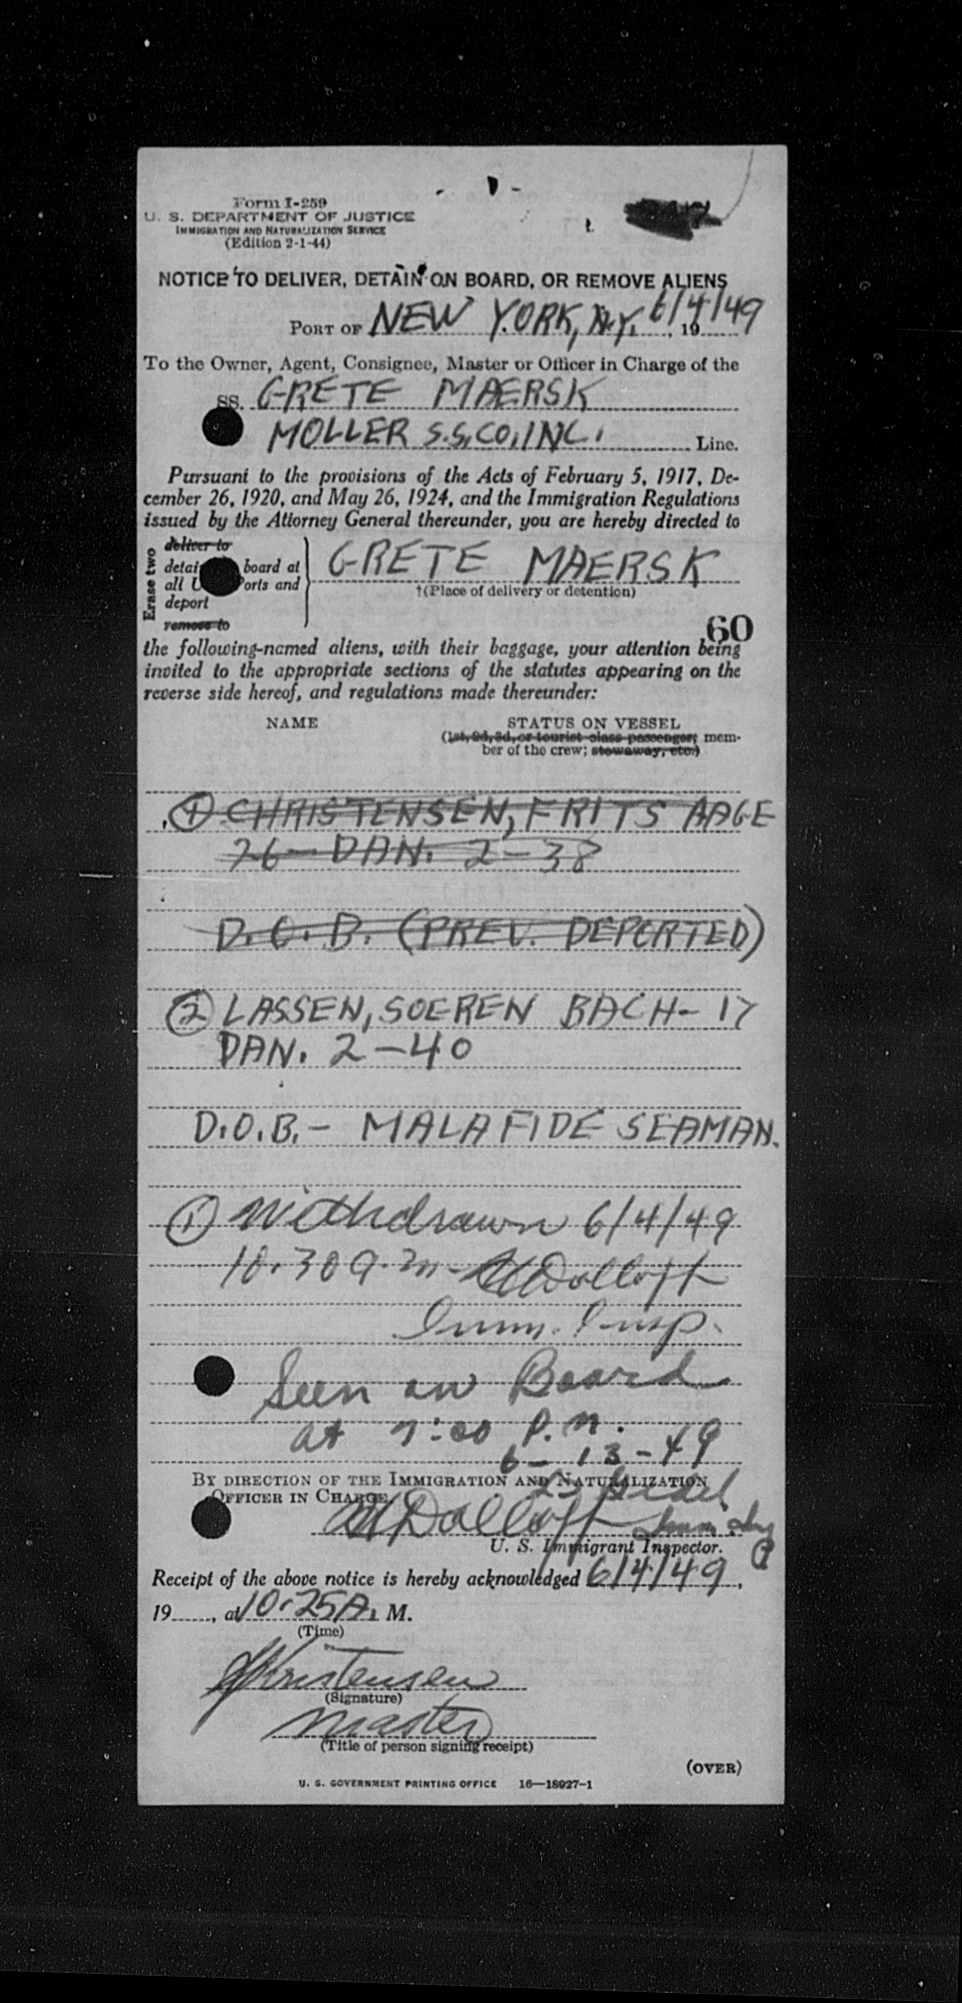 Form I-259
U. S. DEPARTMENT OF JUSTICE
IMMIGRATION AND NATURALIZATION SERVICE
(Edition 2-1-44)
NOTICE TO DELIVER, DETAIN ON BOARD, OR REMOVE ALIENS
PORT OF NEW YORK, N.Y. 6/4/49, 19
To the Owner, Agent, Consignee, Master or Officer in Charge of the
SS. GRETE MAERSK
MOLLER S.S. CO., INC. Line.
Pursuant to the provisions of the Acts of February 5, 1917, De-
cember 26, 1920, and May 26, 1924, and the Immigration Regulations
issued by the Attorney General thereunder, you are hereby directed to
Erase two
deliver to
detai board at
all U orts and
deport
remove to
GRETE MAERSK
†(Place of delivery or detention)
60
the following-named aliens, with their baggage, your attention being
invited to the appropriate sections of the statutes appearing on the
reverse side hereof, and regulations made thereunder:
NAME STATUS ON VESSEL
(1st, 2d, 3d, or tourist class passenger; mem-
ber of the crew; stowaway, etc.)
① CHRISTENSEN, FRITS AAGE
26 - DAN. 2-38
D.O.B. (PREV. DEPORTED)
② LASSEN, SOEREN BACH - 17
DAN. 2-40
D.O.B. - MALAFIDE SEAMAN.
① Withdrawn 6/4/49
10.30 a.m. - Dolloff
Imm. Insp.
Seen on Board
at 7:00 P.M.
6-13-49
BY DIRECTION OF THE IMMIGRATION AND NATURALIZATION
OFFICER IN CHARGE
Dolloff
U. S. Immigrant Inspector.
Receipt of the above notice is hereby acknowledged 6/4/49,
19, at 10.25 A. M.
(Time)
Kristensen
(Signature)
Master
(Title of person signing receipt)
(OVER)
U. S. GOVERNMENT PRINTING OFFICE 16—18027-1